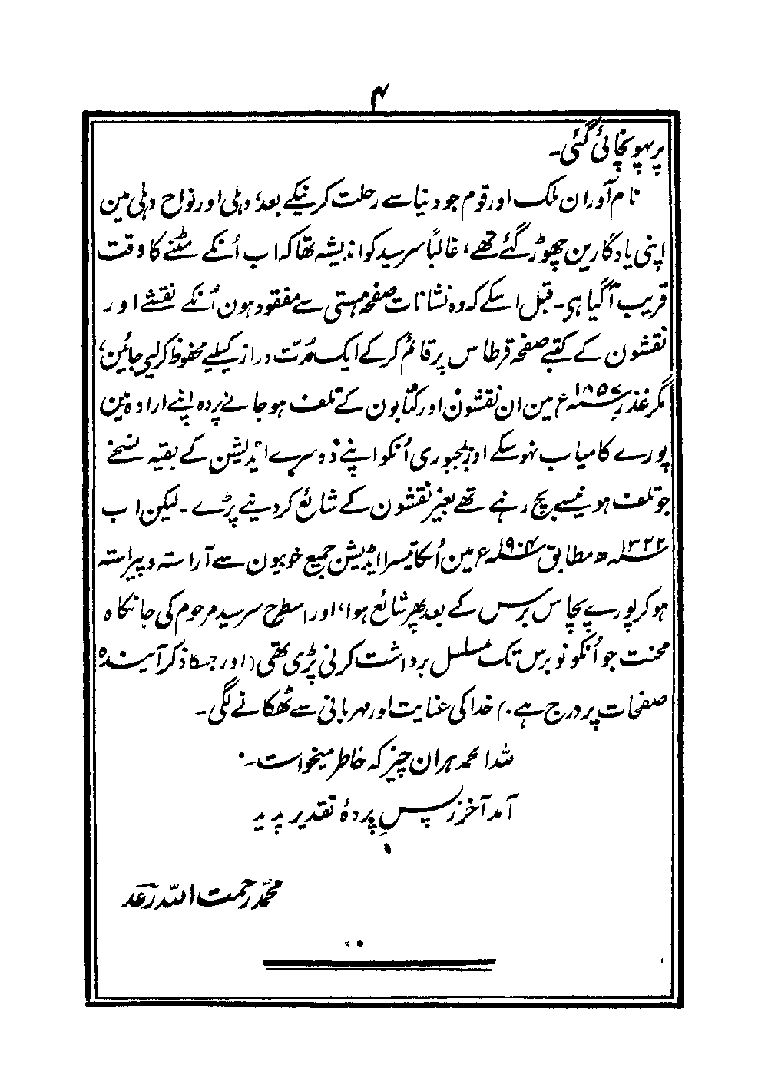 ۴
پر پہونچائی گئی۔
نام آوران ملک اور قوم جو دنیا سے رحلت کرنیکے بعد دہلی اور نواح دہلی مین
اپنی یادگارین چھوڑ گئے تھے، غالباً سرسید کو اندیشہ تھا کہ اب اُنکے مٹنے کا وقت
قریب آگیا ہی۔ قبل اسکے کہ وہ نشانات صفحہ ہستی سے مفقود ہون اُنکے نقشے اور
نقشون کے کتبے صفحہ قرطاس پر قائم کرکے ایک مُدت دراز کیلیے محفوظ کرلیے جائین،
مگر غدر ۱۸۵۷ء مین ان نقشون اور کتابون کے تلف ہو جانے پر وہ اپنے ارادہ مین
پورے کامیاب نہوسکے اور بمجبوری اُنکو اپنے دُوسرے اڈیشن کے بقیہ نسخے
جو تلف ہونیسے بچ رہے تھے بغیر نقشون کے شائع کردینے پڑے۔ لیکن اب
۱۳۲۲ھ مطابق ۱۹۰۴ء مین اُسکا تیسرا اڈیشن جمیع خوبیون سے آراستہ و پیراستہ
ہوکر پورے پچاس برس کے بعد پھر شائع ہوا، اور اسطرح سرسید مرحوم کی جانکاہ
محنت جو اُنکو نو برس تک مسلسل برداشت کرنی پڑی تھی (اور جسکا ذکر آیندہ
صفحات پر درج ہے۔) خدا کی عنایت اور مہربانی سے ٹھکانے لگی۔
للہ الحمد ہر ان چیز کہ خاطر میخواست۔
آمد آخر ز پسِ پردۂ تقدیر پدید
محمد رحمت اللہ رعد